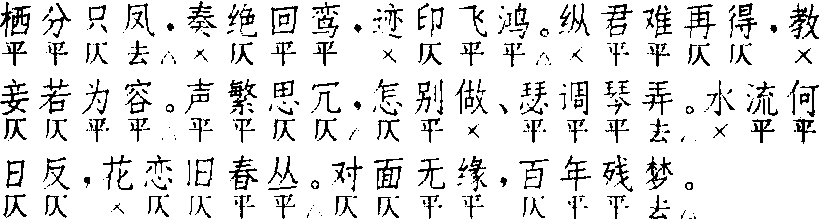 栖分只凤，奏绝回鸾，迹印飞鸿。纵君难再得，教
平平仄去△×仄平平×仄平平△×平平仄仄×
妾若为容。声繁思冗，怎别做、瑟调琴弄。水流何
仄仄平平△平平仄仄/仄平×平平平去△×平平
日反，花恋旧春丛。对面无缘，百年残梦。
仄仄×仄仄平平△仄仄平平仄平平去△